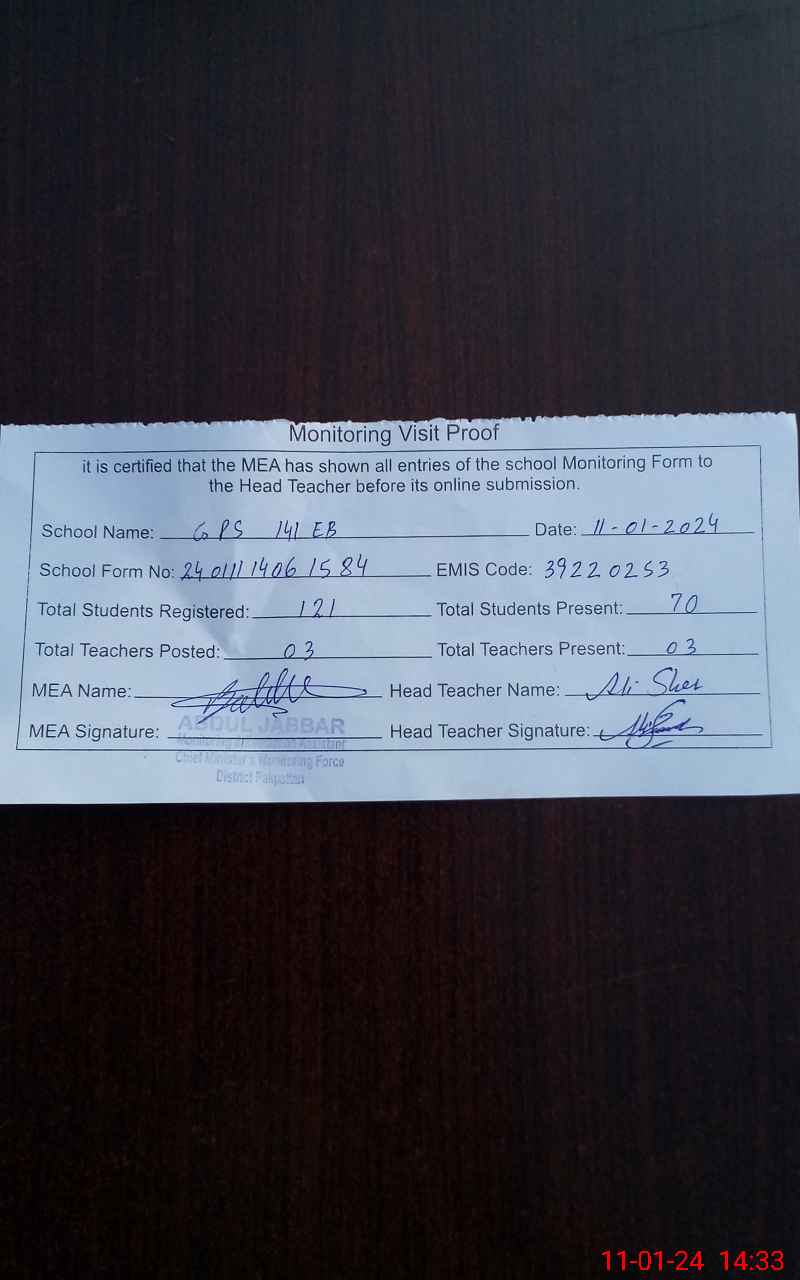 Monitoring Visit Proof
it is certified that the MEA has shown all entries of the school Monitoring Form to
the Head Teacher before its online submission.
School Name: GPS 141 EB Date: 11-01-2024
School Form No: 24011114061584 EMIS Code: 39220253
Total Students Registered: 121 Total Students Present: 70
Total Teachers Posted: 03 Total Teachers Present: 03
MEA Name: Head Teacher Name: Ali Sher
MEA Signature: Head Teacher Signature:
ABDUL JABBAR
Monitoring Assistant
Chief Minister's Monitoring Force
District Pakpattan
11-01-24 14:33